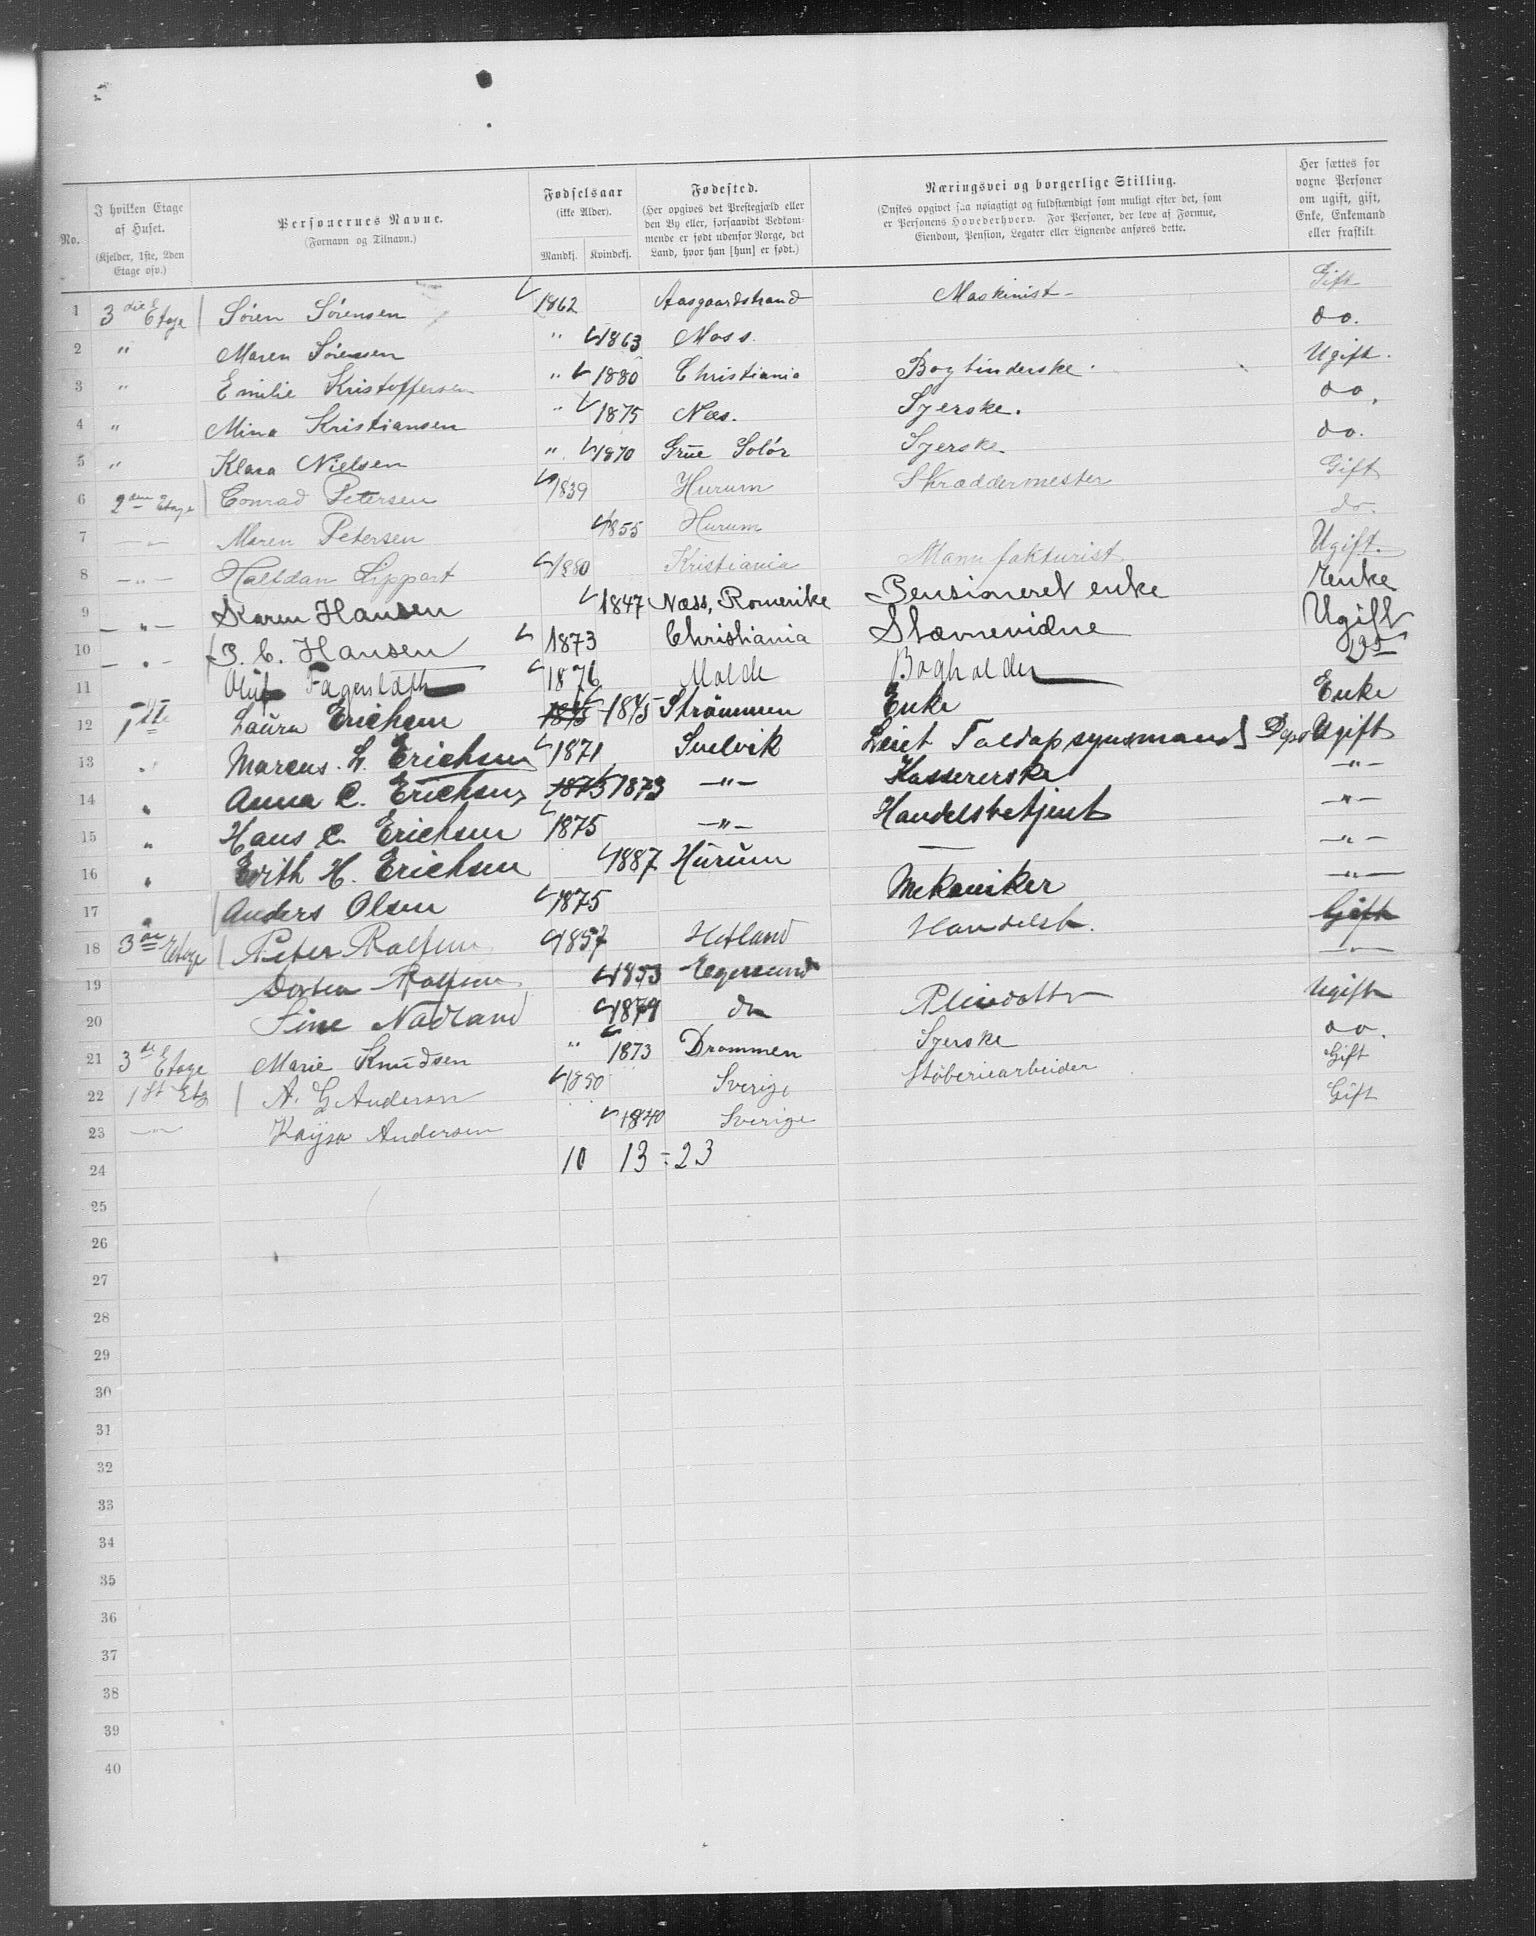 No.
I hvilken Etage af Huset.
(Kjelder, 1ste, 2den Etage osv.)
Personernes Navne.
(Fornavn og Tilnavn.)
Fødselsaar
(ikke Alder).
Mandkj. Kvindekj.
Fødested.
(Her opgives det Prestegjæld eller den By eller, forsaavidt Vedkommende er født udenfor Norge, det Land, hvor han [hun] er født.)
Næringsvei og borgerlige Stilling.
(Ønskes opgivet saa nøiagtigt og fuldstændigt som muligt efter det, som er Personens Hovederhverv. For Personer, der leve af Formue, Eiendom, Pension, Legater eller Lignende anføres dette.
Her sættes for voxne Personer om ugift, gift, Enke, Enkemand eller fraskilt
1 3die Etage Søren Sørensen 1862 Aasgaardstrand Maskinist - Gift
2 " Maren Sørensen " 1863 Moss. do.
3 " Emilie Kristoffersen " 1880 Christiania Bogbinderske. Ugift.
4 " Mina Kristiansen " 1875 Næs. Syerske. do.
5 " Klara Nielsen " 1870 Grue Solør Syerske do.
6 2den Etage Conrad Petersen 1839 Hurum Skræddermester Gift
7 — " — Maren Petersen 1855 Hurum do.
8 — " — Halfdan Lippert 1880 Kristiania Manufakturist Ugift.
9 — " — Karen Hansen 1847 Næss, Romerike Pensioneret enke Enke
10 — " — P. C. Hansen 1873 Christiania Stævnevidne Ugift
11 Oluf 1876 Molde Bogholder
12 1ste Laura Erichsen 1845 1845 Strømmen Enke Enke
13 " Marcus. L. Erichsen 1871 Svelvik Ugift
14 " Anna C. Erichsen 1873 1873 — " — Kassererske — " —
15 " Hans C. Erichsen 1875 — " — Handelsbetjent — " —
16 " Edith H. Erichsen 1887 Hurum — — " —
17 " Anders Olsen 1875 Mekaniker — " —
18 3de Etage Peter Ralfsen 1857 Hetland Handelsb. Gift
19 Dortea Ralfsen 1853 Egersund — " —
20 Sine Nadland 1879 do Pleiedatter Ugift
21 3de Etage Marie Knudsen " 1873 Drammen Syerske do.
22 1st Etg A. G Anderson 1850 Sverige Støberiearbeider Gift
23 — " — Kajsa Andersen 1840 Sverige Gift
24 10 13 = 23
25
26
27
28
29
30
31
32
33
34
35
36
37
38
39
40